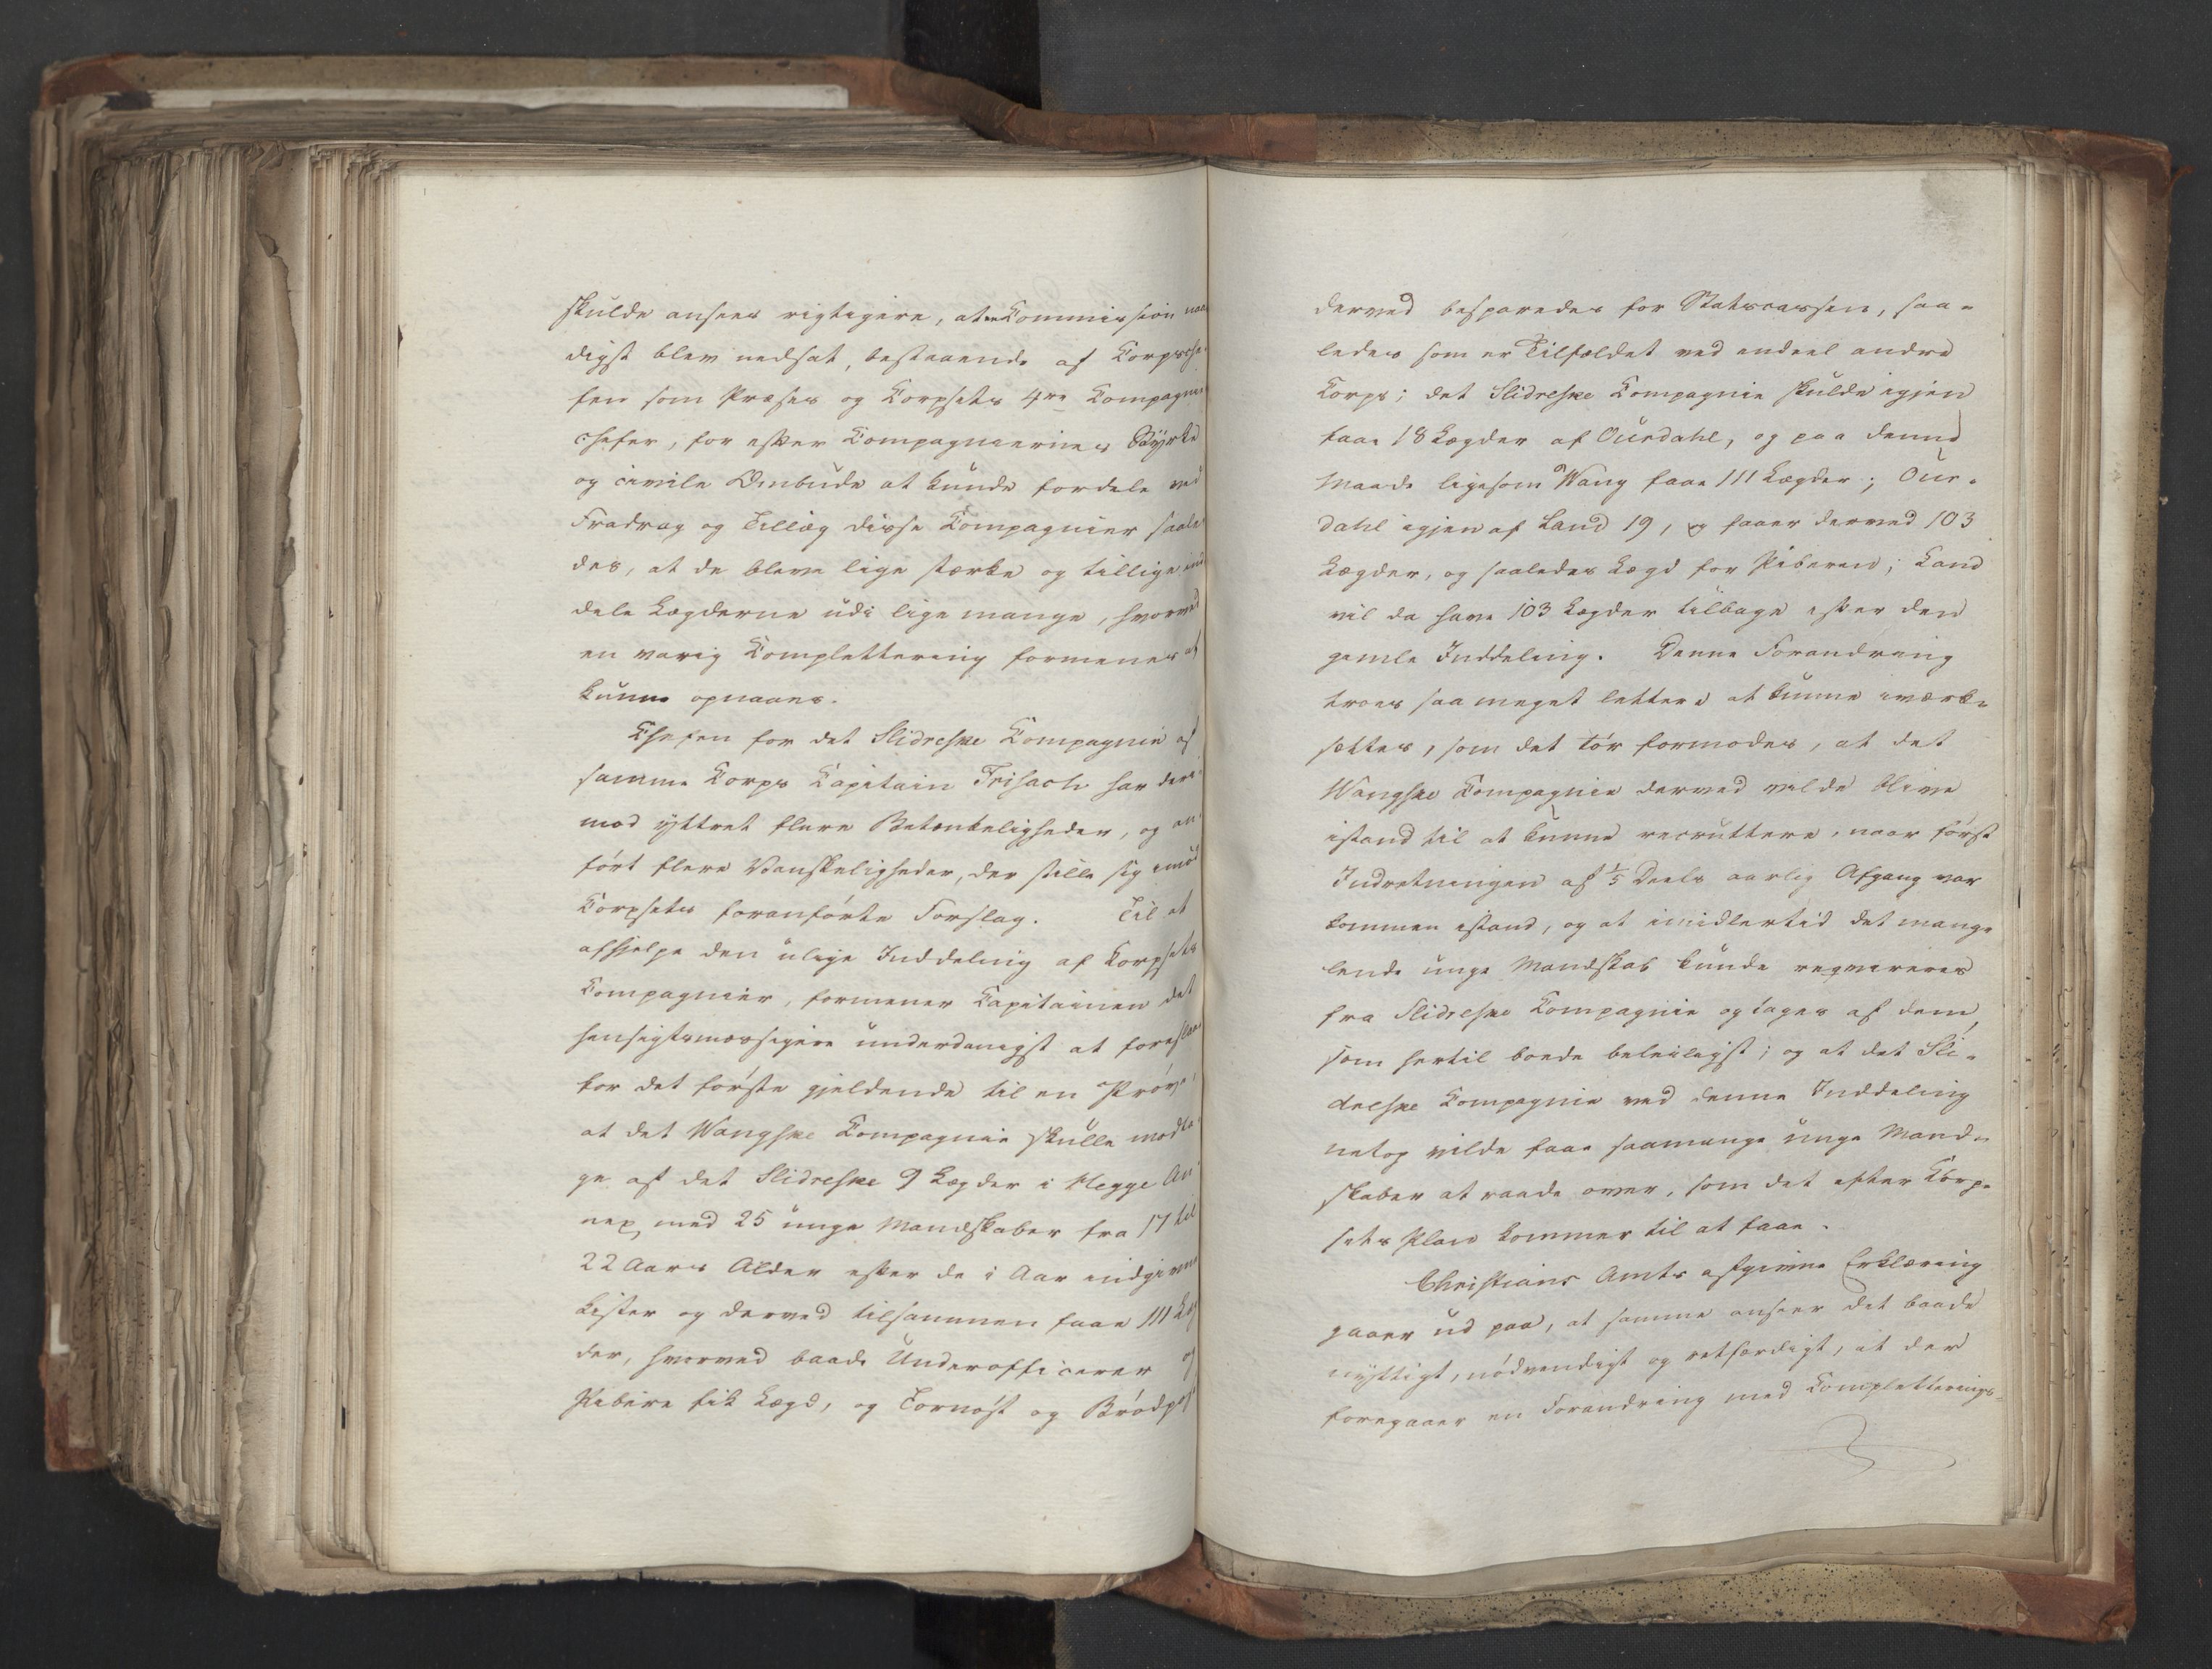 skulde ansees rigtigere, at en Commission naa-
digst blev nedsat, bestaaende af Corpsche-
fen som Præses og Corpsets 4re Compagnie
chefer, for efter Compagniernes Styrke
og civile Ombude at kunde fordele ved
Fradrag og Tillæg disse Compagnier saale-
des, at de bleve lige stærke og tillige ind-
dele Lægderne udi lige mange, hvorved
en varig Complettering formenes at
kunne opnaaes.
Chefen for det Slidreske Compagnie af
samme Corps Capitain Frisach har deri-
mod yttret flere Betænkeligheder, og an-
ført flere Vanskeligheder, der stille sig imod
Corpsets foranførte Forslag. Til at
afhjelpe den ulige Inddeling af Corpsets
Compagnier, formener Capitainen det
hensigtsmæssigere underdanigst at foreslaae
for det første gjeldende til en Prøve,
at det Wangske Compagnie skulle modta-
ge af det Slidreske 9 Lægder i Hegge An-
nex, med 25 unge Mandskaber fra 17 til
22 Aars Alder efter de i Aar indgivne
Lister og derved tilsammen faae 111 Læg-
der, hvorved baade Underofficerer og
Pibere fik Lægd, og Cornøst og Brødpost
derved besparedes for Statscassen, saa-
ledes som er Tilfældet ved endeel andre
Corps; det Slidreske Compagnie skulde igjen
faae 18 Lægder af Ourdahl, og paa denne
Maade ligesom Wang faae 111 Lægder; Our-
dahl igjen af Land 19, og faaer derved 103
Lægder, og saaledes Lægd for Piberen; Land
vil da have 103 Lægder tilbage efter den
gamle Inddeling. Denne Forandring
troes saa meget lettere at kunne iværk-
settes, som det tør formodes, at det
Wangske Compagnie derved vilde blive
istand til at kunne recruttere, naar først
Indretningen af 1/5 Deels aarlig Afgang var
kommen istand, og at imidlertid det mang-
lende unge Mandskab kunde reqvireres
fra Slidreske Compagnie og tages af dem,
som hertil boede beleiligst; og at det Sli-
dreske Compagnie ved denne Inddeling
netop vilde faae saamange unge Mand-
skaber at raade over, som det efter Corp-
sets Plan kommer til at faae.
Christians Amts afgivne Erklæring
gaaer ud paa, at samme anseer det baade
nyttigt, nødvendigt og retfærdigt, at der
foregaaer en Forandring med Completterings-